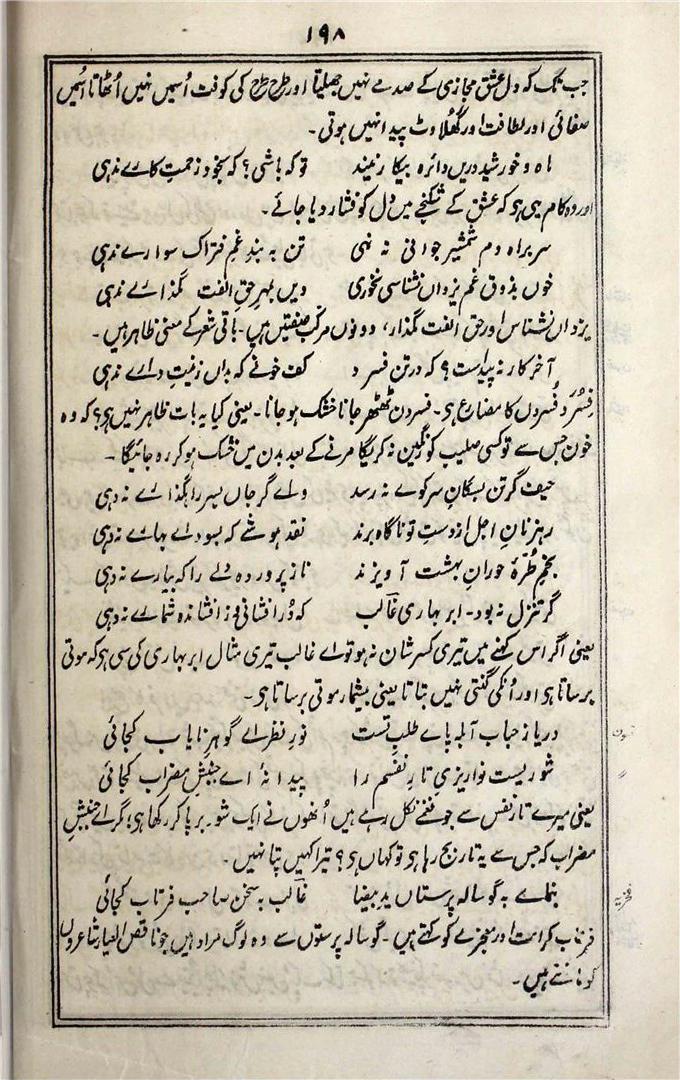 ۱۹۸
جب تک کہ دل عشق مجازی کے صدمے نہیں جھیلتا اور طرح طرح کی کوفت اُسمیں نہیں اُٹھاتا اُسمیں
صفائی اور لطافت اور گھُلاوٹ پیدا نہیں ہوتی۔
ماہ و خورشید دریں دائرہ بیکار نیند تو کہ باشی؟ کہ بخود زحمتِ کارے ندہی
اور وہ کام یہی ہے کہ عشق کے شکنجے میں دل کو فشار دیا جائے۔
سر براہِ دمِ شمشیر جوانی نہ نہی تن بہ بندِ غمِ فتراک سوارے ندہی
خوں بذوق غم یزداں نشناسی نخوری دیں بمہرِ حقِ الفت نگذارے ندہی
یزداں نشناس اور حق الفت نگذار، دونوں مرکب صفتیں ہیں۔ باقی شعر کے معنی ظاہر ہیں۔
آخر کار نہ پیداست؟ کہ در تن فسرد کف خونے کہ بداں زینتِ دارے ندہی
فِسُرَد فُسردن کا مضارع ہے۔ فسردن ٹھٹھر جانا خشک ہو جانا۔ یعنی کیا یہ بات ظاہر نہیں ہے؟ کہ وہ
خون جس سے تو کسی صلیب کو رنگین نہ کریگا مرنے کے بعد بدن میں خشک ہو کر رہ جائیگا۔
حیف گر تن بسگانِ سر کوے نہ رسد واے گر جاں بسرِ راہگذارے نہ دہی
رہزنانِ اجل از دستِ تو ناگاہ برند نقد ہوشے کہ بسوداے بہارے نہ دہی
بخمِ طُرّۂ حورانِ بہشت آویزند ناز پروردہ دلے را کہ بیارے نہ دہی
گر تنزل نہ بود۔ ابر بہاری غالب کہ دُر افشانی و ز افشاندہ شمارے نہ دہی
یعنی اگر اس کہنے میں تیری کسرِ شان نہ ہو تو اے غالب تیری مثال ابر بہاری کی سی ہے کہ موتی
برساتا ہے اور اُنکی گنتی نہیں بتاتا یعنی بیشمار موتی برساتا ہے۔
دریا ز حباب آبلہ پاے طلبِ تست نورِ نظر اے گوہرِ نایاب کجائی
شوریست نواریزیِ تارِ نفسم را پیدا نۂ اے جنبشِ مضراب کجائی
یعنی میرے تار نفس سے جو نغمے نکل رہے ہیں اُنھوں نے ایک شور برپا کر رکھا ہے؛ مگر اے جنبشِ
مضراب کہ جس سے یہ تار بج رہا ہے تو کہاں ہے؟ تیرا کہیں پتا نہیں۔
بنماے بہ گوسالہ پرستاں یدِ بیضا غالب بہ سخن صاحب فرتاب کجائی
فرتاب کرامت اور معجزے کو کہتے ہیں۔ گوسالہ پرستوں سے وہ لوگ مراد ہیں جو ناقص العیار شاعروں
کو مانتے ہیں۔